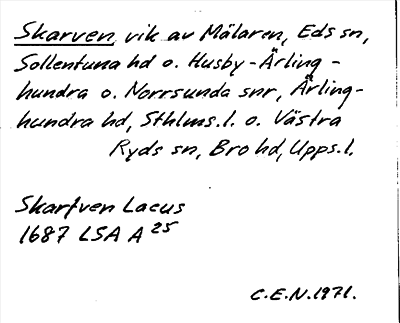 Skarven vik av Mälaren, Eds sn,
Sollentuna hd o. Husby-Ärling-
hundra o. Norrsunda snr, Ärling-
hundra hd, Sthlms.l. o. Västra
Ryds sn, Bro hd, Upps.l.
Skarfven Lacus
1687 LSA A 25
C.E.N. 1971.